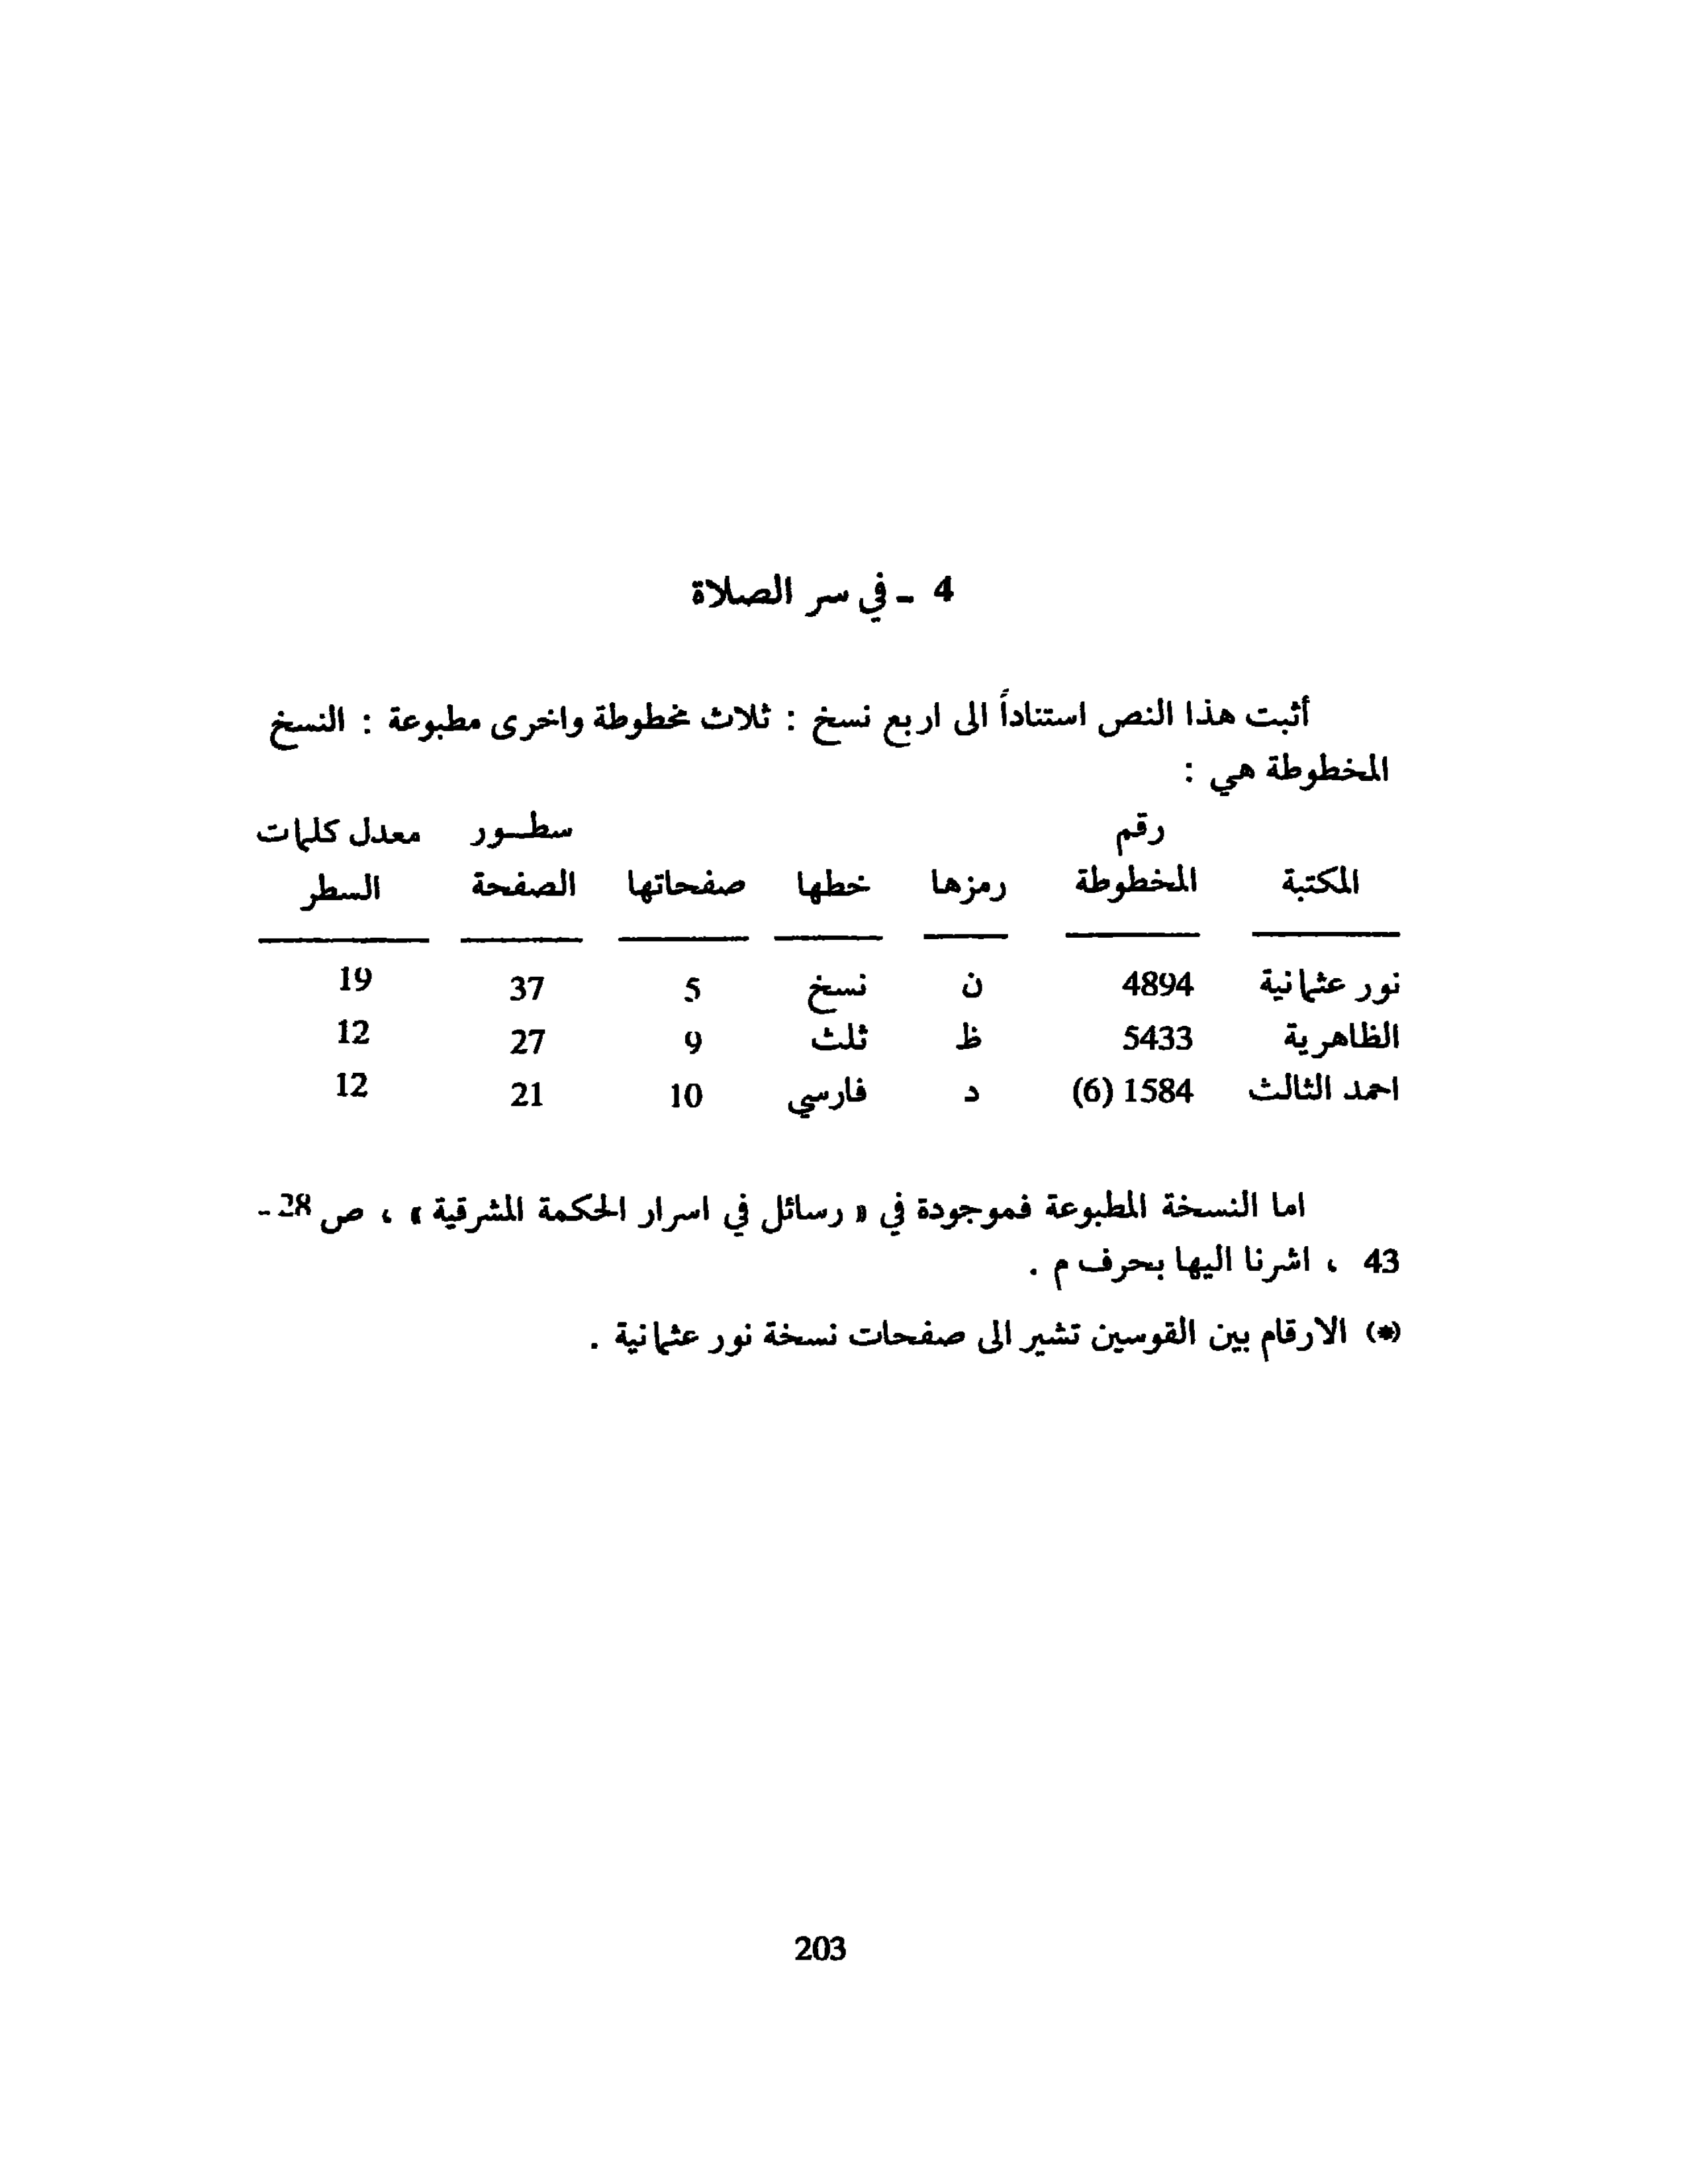 4 - في سر الصلاة
أثبت هذا النص استناداً الى اربع نسخ : ثلاث مخطوطة واخرى مطبوعة : النسخ
المخطوطة هي :
رقم سطــور معدل كلمات
المكتبة المخطوطة رمزها خطها صفحاتها الصفحة السطر
نور عثمانية 4894 ن نسخ 5 37 19
الظاهرية 5433 ظ ثلث 9 27 12
احمد الثالث 1584 (6) د فارسي 10 21 12
اما النسخة المطبوعة فموجودة في « رسائل في اسرار الحكمة المشرقية » ، ص 28 -
43 ، اشرنا اليها بحرف م .
(*) الارقام بين القوسين تشير الى صفحات نسخة نور عثمانية .
203